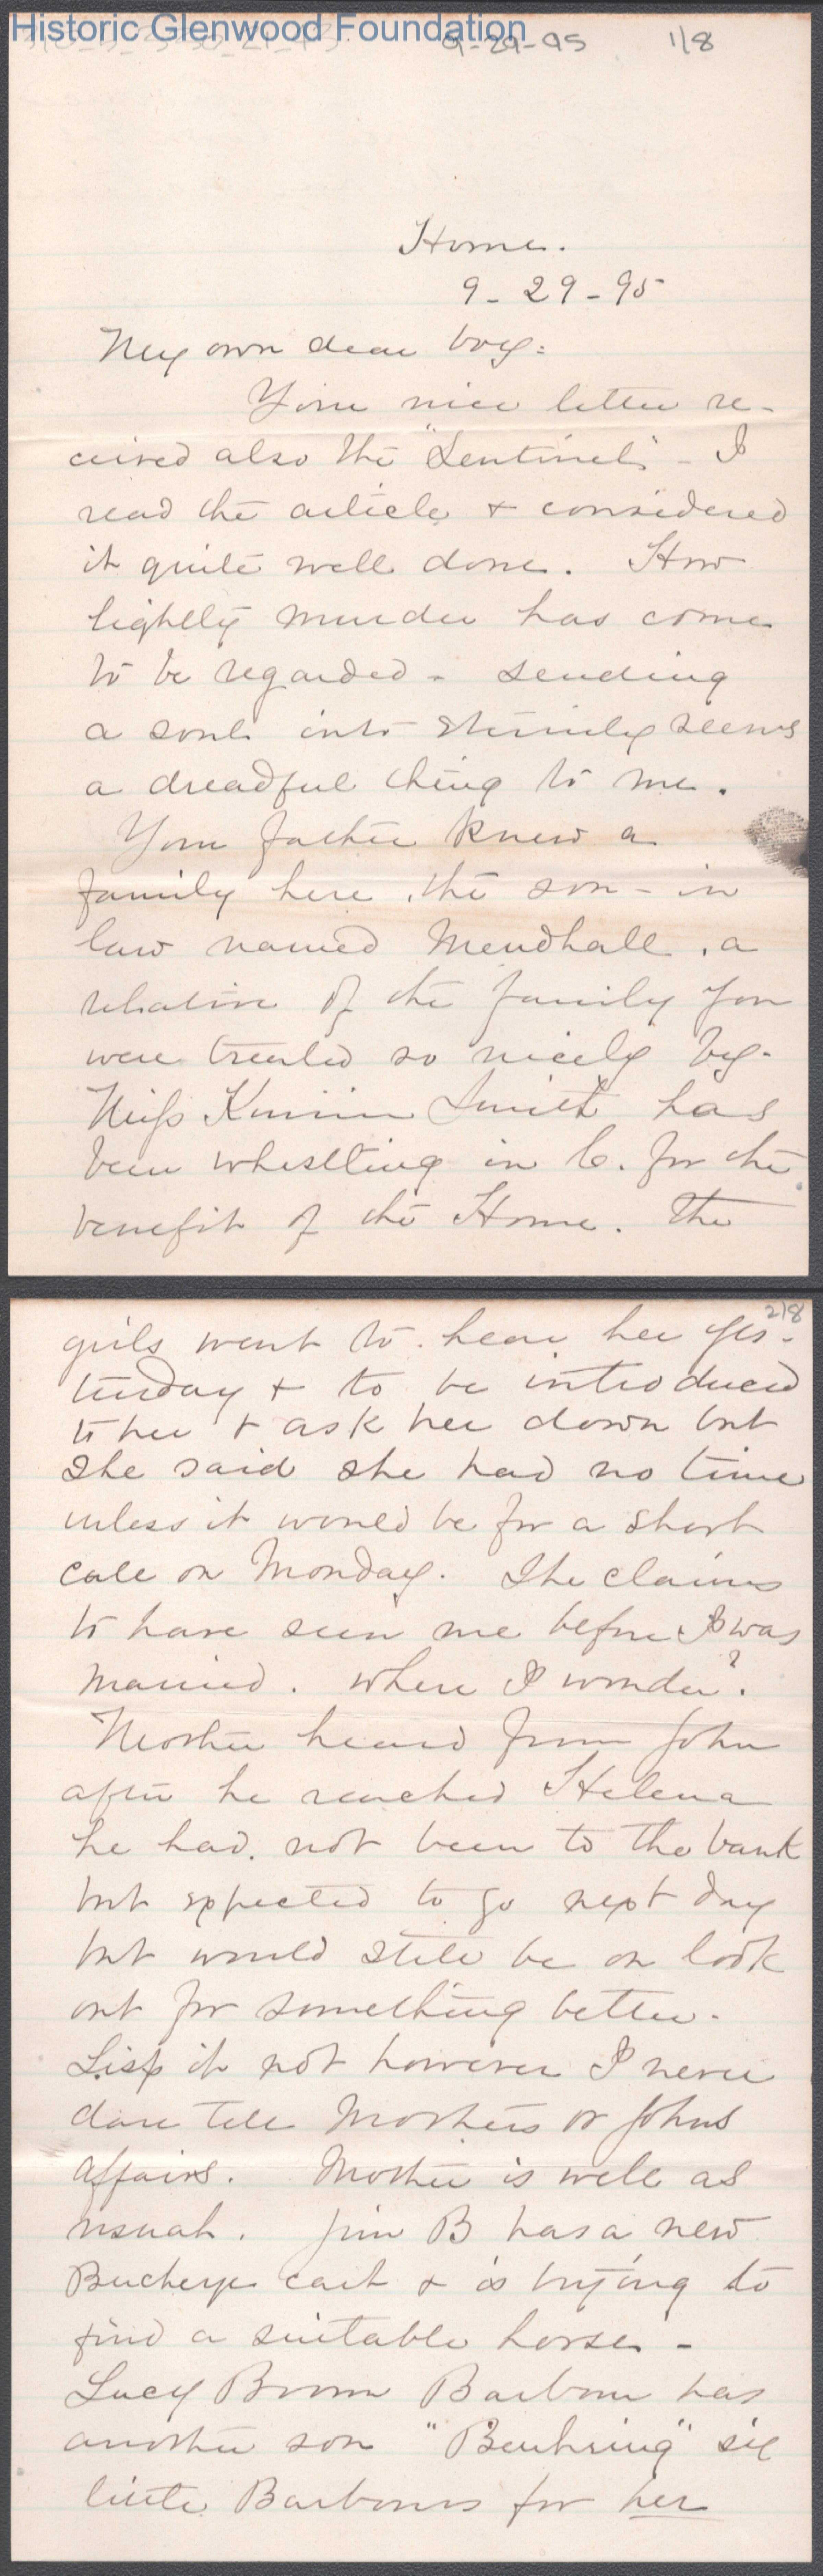 Historic Glenwood Foundation
9-29-95 1/8
Home.
9-29-95
My own dear boy:
Your nice letter re-
ceived also the "Sentinel" - I
read the article & considered
it quite well done. How
lightly murder has come
to be regarded - sending
a soul into eternity seems
a dreadful thing to me.
Your father knew a
family here, the son-in
law named Mendhall, a
relative of the family you
were treated so nicely by.
Miss Smith has
been whistling in C. for the
benefit of the Home. The
2/8
girls went to hear her yes-
terday & to be introduced
to her & ask her down but
she said she had no time
unless it would be for a short
call on Monday. She claims
to have seen me before I was
married. Where I wonder?
Mother heard from John
after he reached Helena
he had not been to the bank
but expected to go next day
but would still be on look
out for something better.
Lisp it not however I never
dare tell Mothers or Johns
affairs. Mother is well as
usual. Jim B has a new
Buckeye cart & is trying to
find a suitable horse -
Lucy Brown Barbour has
another son "Beuhring" six
little Barbours for her